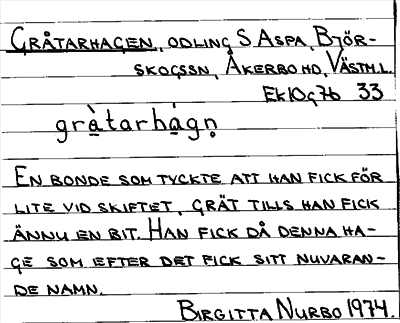 GRÅTARHAGEN, ODLING S ASPA, BJÖR-
SKOGSSN, ÅKERBO HD, VÄSTM.L.
EK10G76 33
gràtarhágn
EN BONDE SOM TYCKTE ATT HAN FICK FÖR
LITE VID SKIFTET, GRÄT TILLS HAN FICK
ÄNNU EN BIT. HAN FICK DÅ DENNA HA-
GE SOM EFTER DET FICK SITT NUVARAN-
DE NAMN.
BIRGITTA NURBO 1974.